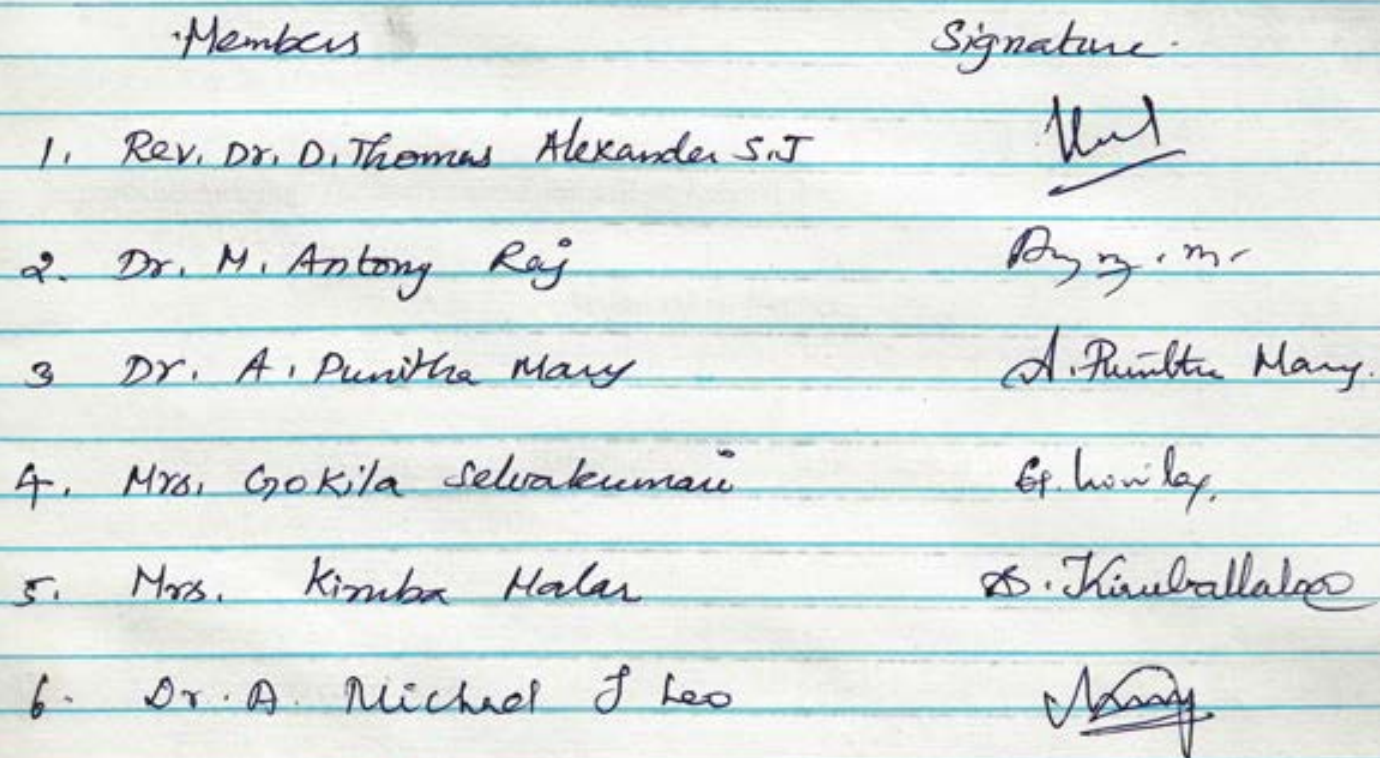 Members Signature
1. Rev. Dr. D. Thomas Alexander S.J
2. Dr. M. Antony Raj
3 Dr. A. Punitha Mary A. Punitha Mary.
4. Mrs. Gokila Selvakumari
5. Mrs. Kiruba Malar
6. Dr. A. Michael J Leo